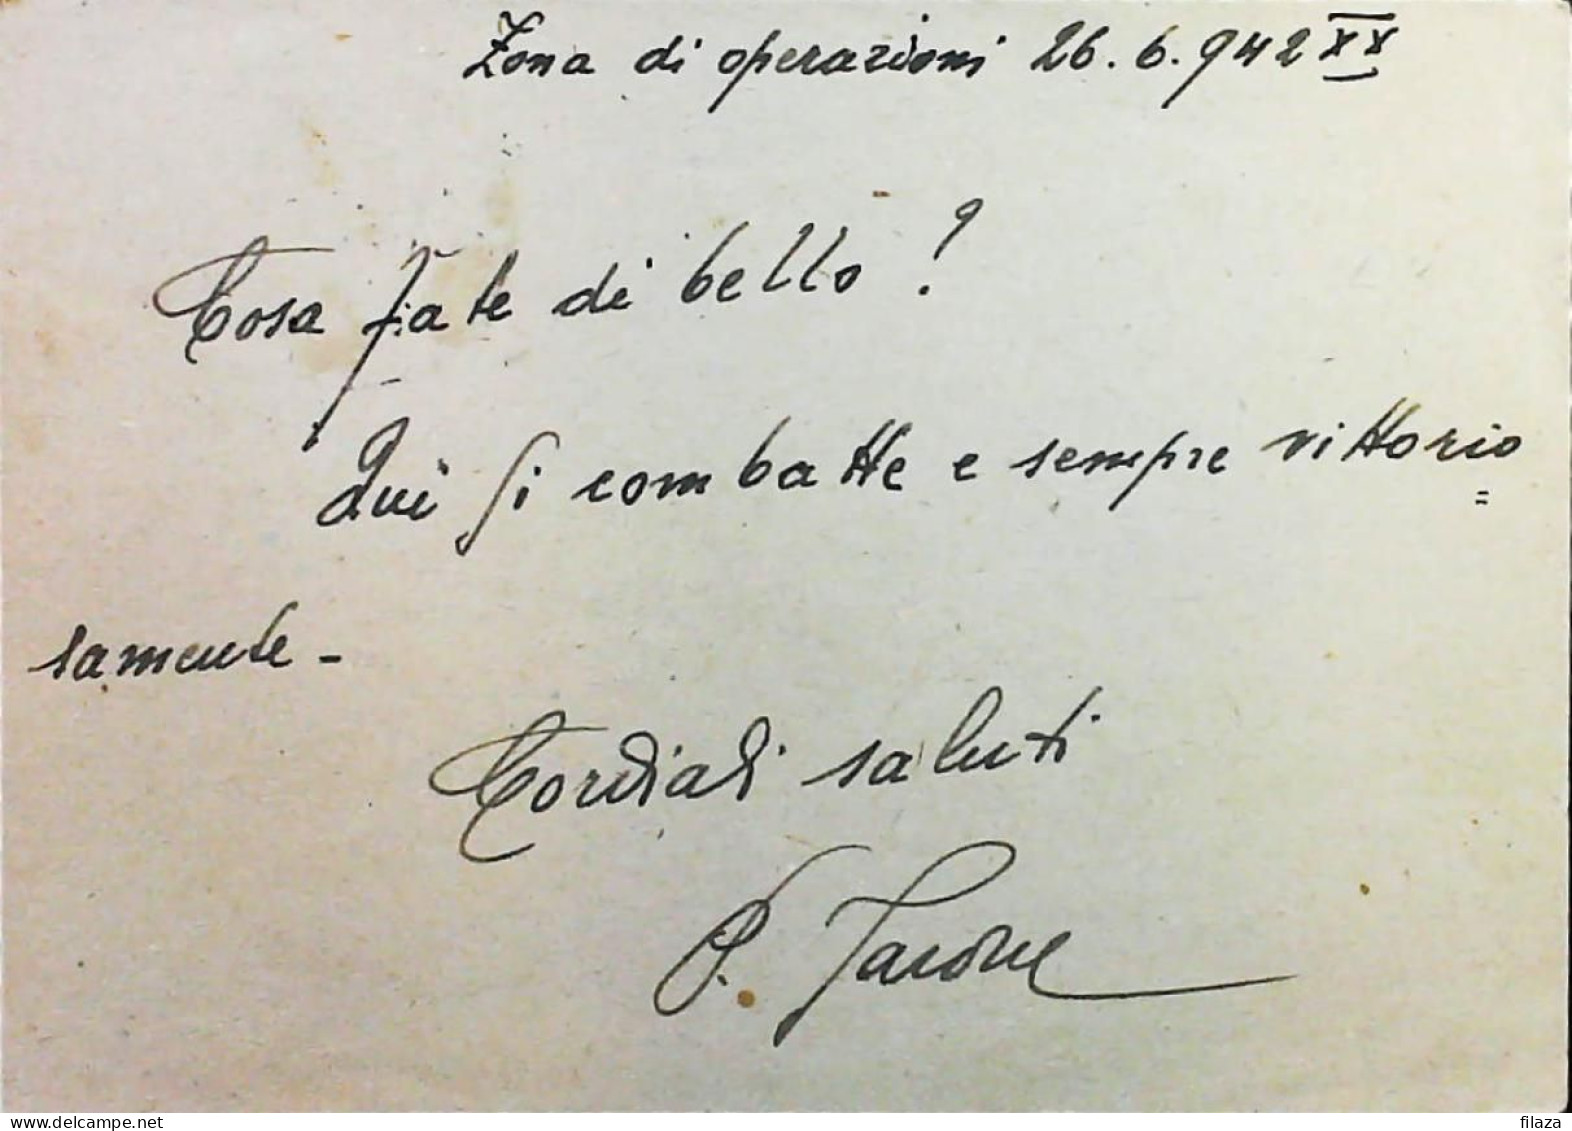 Zona di operazioni 26.6.942 XX
Cosa fate di bello?
Qui si combatte e sempre vittorio=
samente-
Cordiali saluti
delcampe.net
filaza